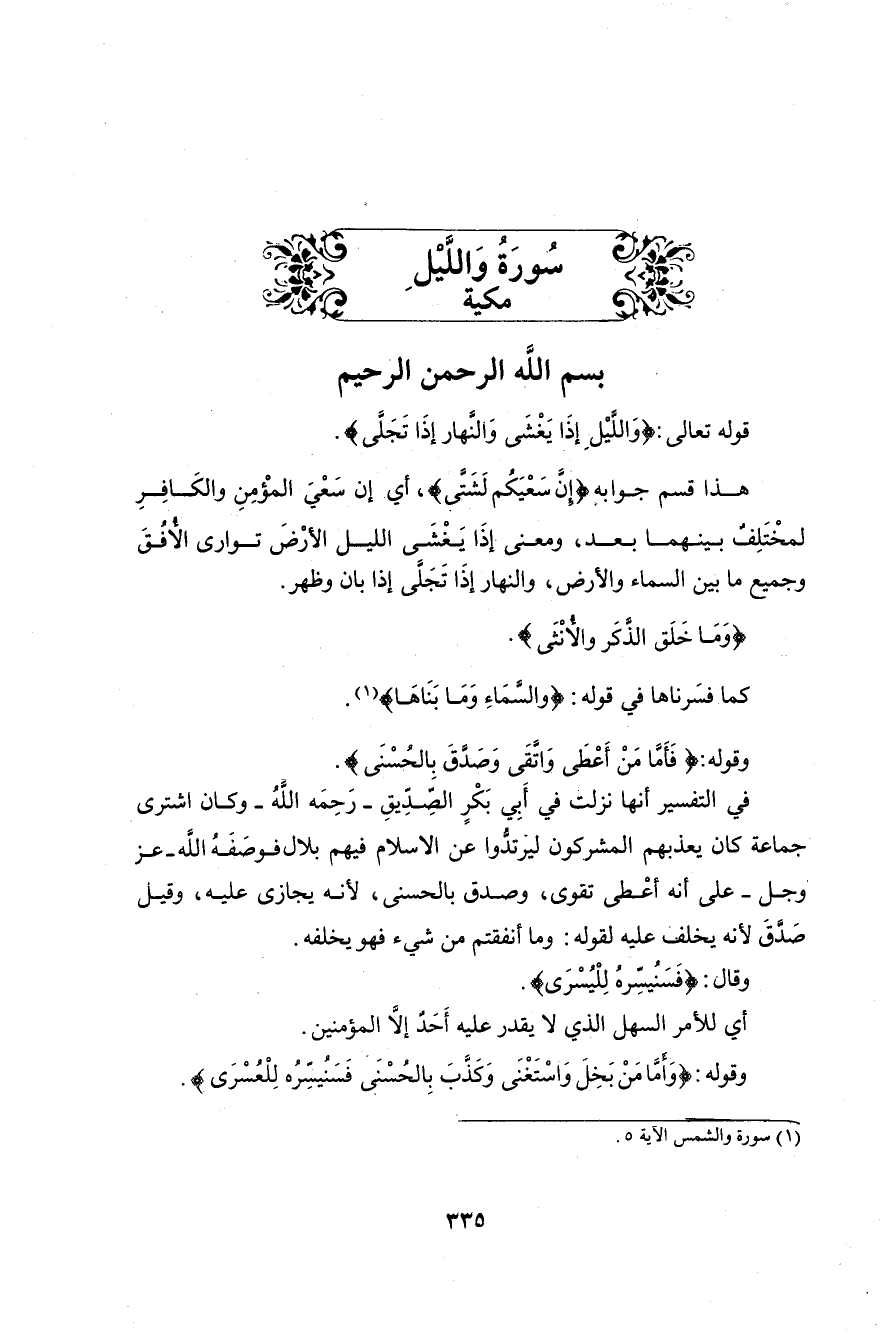 سُورَةُ وَاللَّيْلِ
مكية
بسم اللَّه الرحمن الرحيم
قوله تعالى: ﴿وَاللَّيْلِ إذَا يَغْشَى وَالنَّهار إذَا تَجَلَّى﴾.
هـذا قسم جـوابه ﴿إِنَّ سَعْيَكُم لَشَتَّى﴾، أي إن سَعْيَ المؤْمِنِ والكَـافِـرِ
لمخْتَلِفٌ بـينـهمـا بـعـد، ومعـنى إذَا يَـغْشَـى الليـل الأرْضَ تـوارى الأُفُـقَ
وجميع ما بين السماء والأرض، والنهار إذَا تَجَلَّى إذا بان وظهر.
﴿وَمَـا خَلَق الذَّكَر والأُنْثَى﴾.
كما فسَرناها في قوله: ﴿والسَّمَاءِ وَمَـا بَنَاهَـا﴾(١).
وقوله: ﴿فَأَمَّا مَنْ أَعْطَى وَاتَّقَى وَصَدَّقَ بِالحُسْنَى﴾.
في التفسير أنها نزلت في أَبِي بَكْرٍ الصِّدِّيقِ ـ رَحِمَه اللَّهُ ـ وكـان اشترى
جماعة كان يعذبهم المشركون ليرْتدُّوا عن الاسلام فيهم بلال فـوصَفَـهُ اللَّه ـ عـز
وجـل ـ على أنه أعْـطى تقوى، وصـدق بالحسنى، لأنـه يجازى عليـه، وقيـل
صَدَّقَ لأنه يخلف عليه لقوله: وما أنفقتم من شيء فهو يخلفه.
وقال: ﴿فَسَنُيسِّرهُ لِلْيُسْرَى﴾.
أي للأمر السهل الذي لا يقدر عليه أَحَدٌ إلاَّ المؤمنين.
وقوله: ﴿وَأَمَّا مَنْ بَخِلَ وَاسْتَغْنَى وَكَذَّبَ بِالحُسْنَى فَسَنُيسِّرُه لِلْعُسْرَى﴾.
(١) سورة والشمس الآية ٥.
٣٣٥